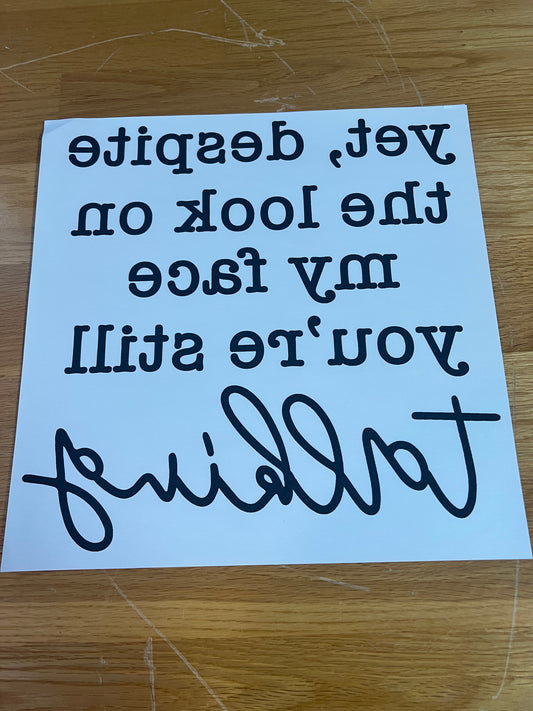 yet, despite
the look on
my face
you're still
talking